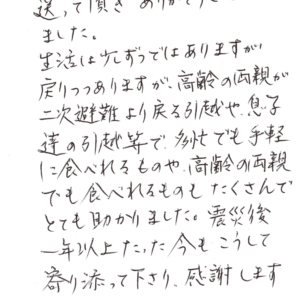 送って頂き ありがとうござい
ました。
生活は少しずつではありますが
戻りつつありますが、高齢の両親が
二次避難より戻る引越や、息子
達の引越等で、多忙でも手軽
に食べれるものや、高齢の両親
でも食べれるものも たくさんで
とても助かりました。震災後
一年以上たった今も こうして
寄り添って下さり、感謝します